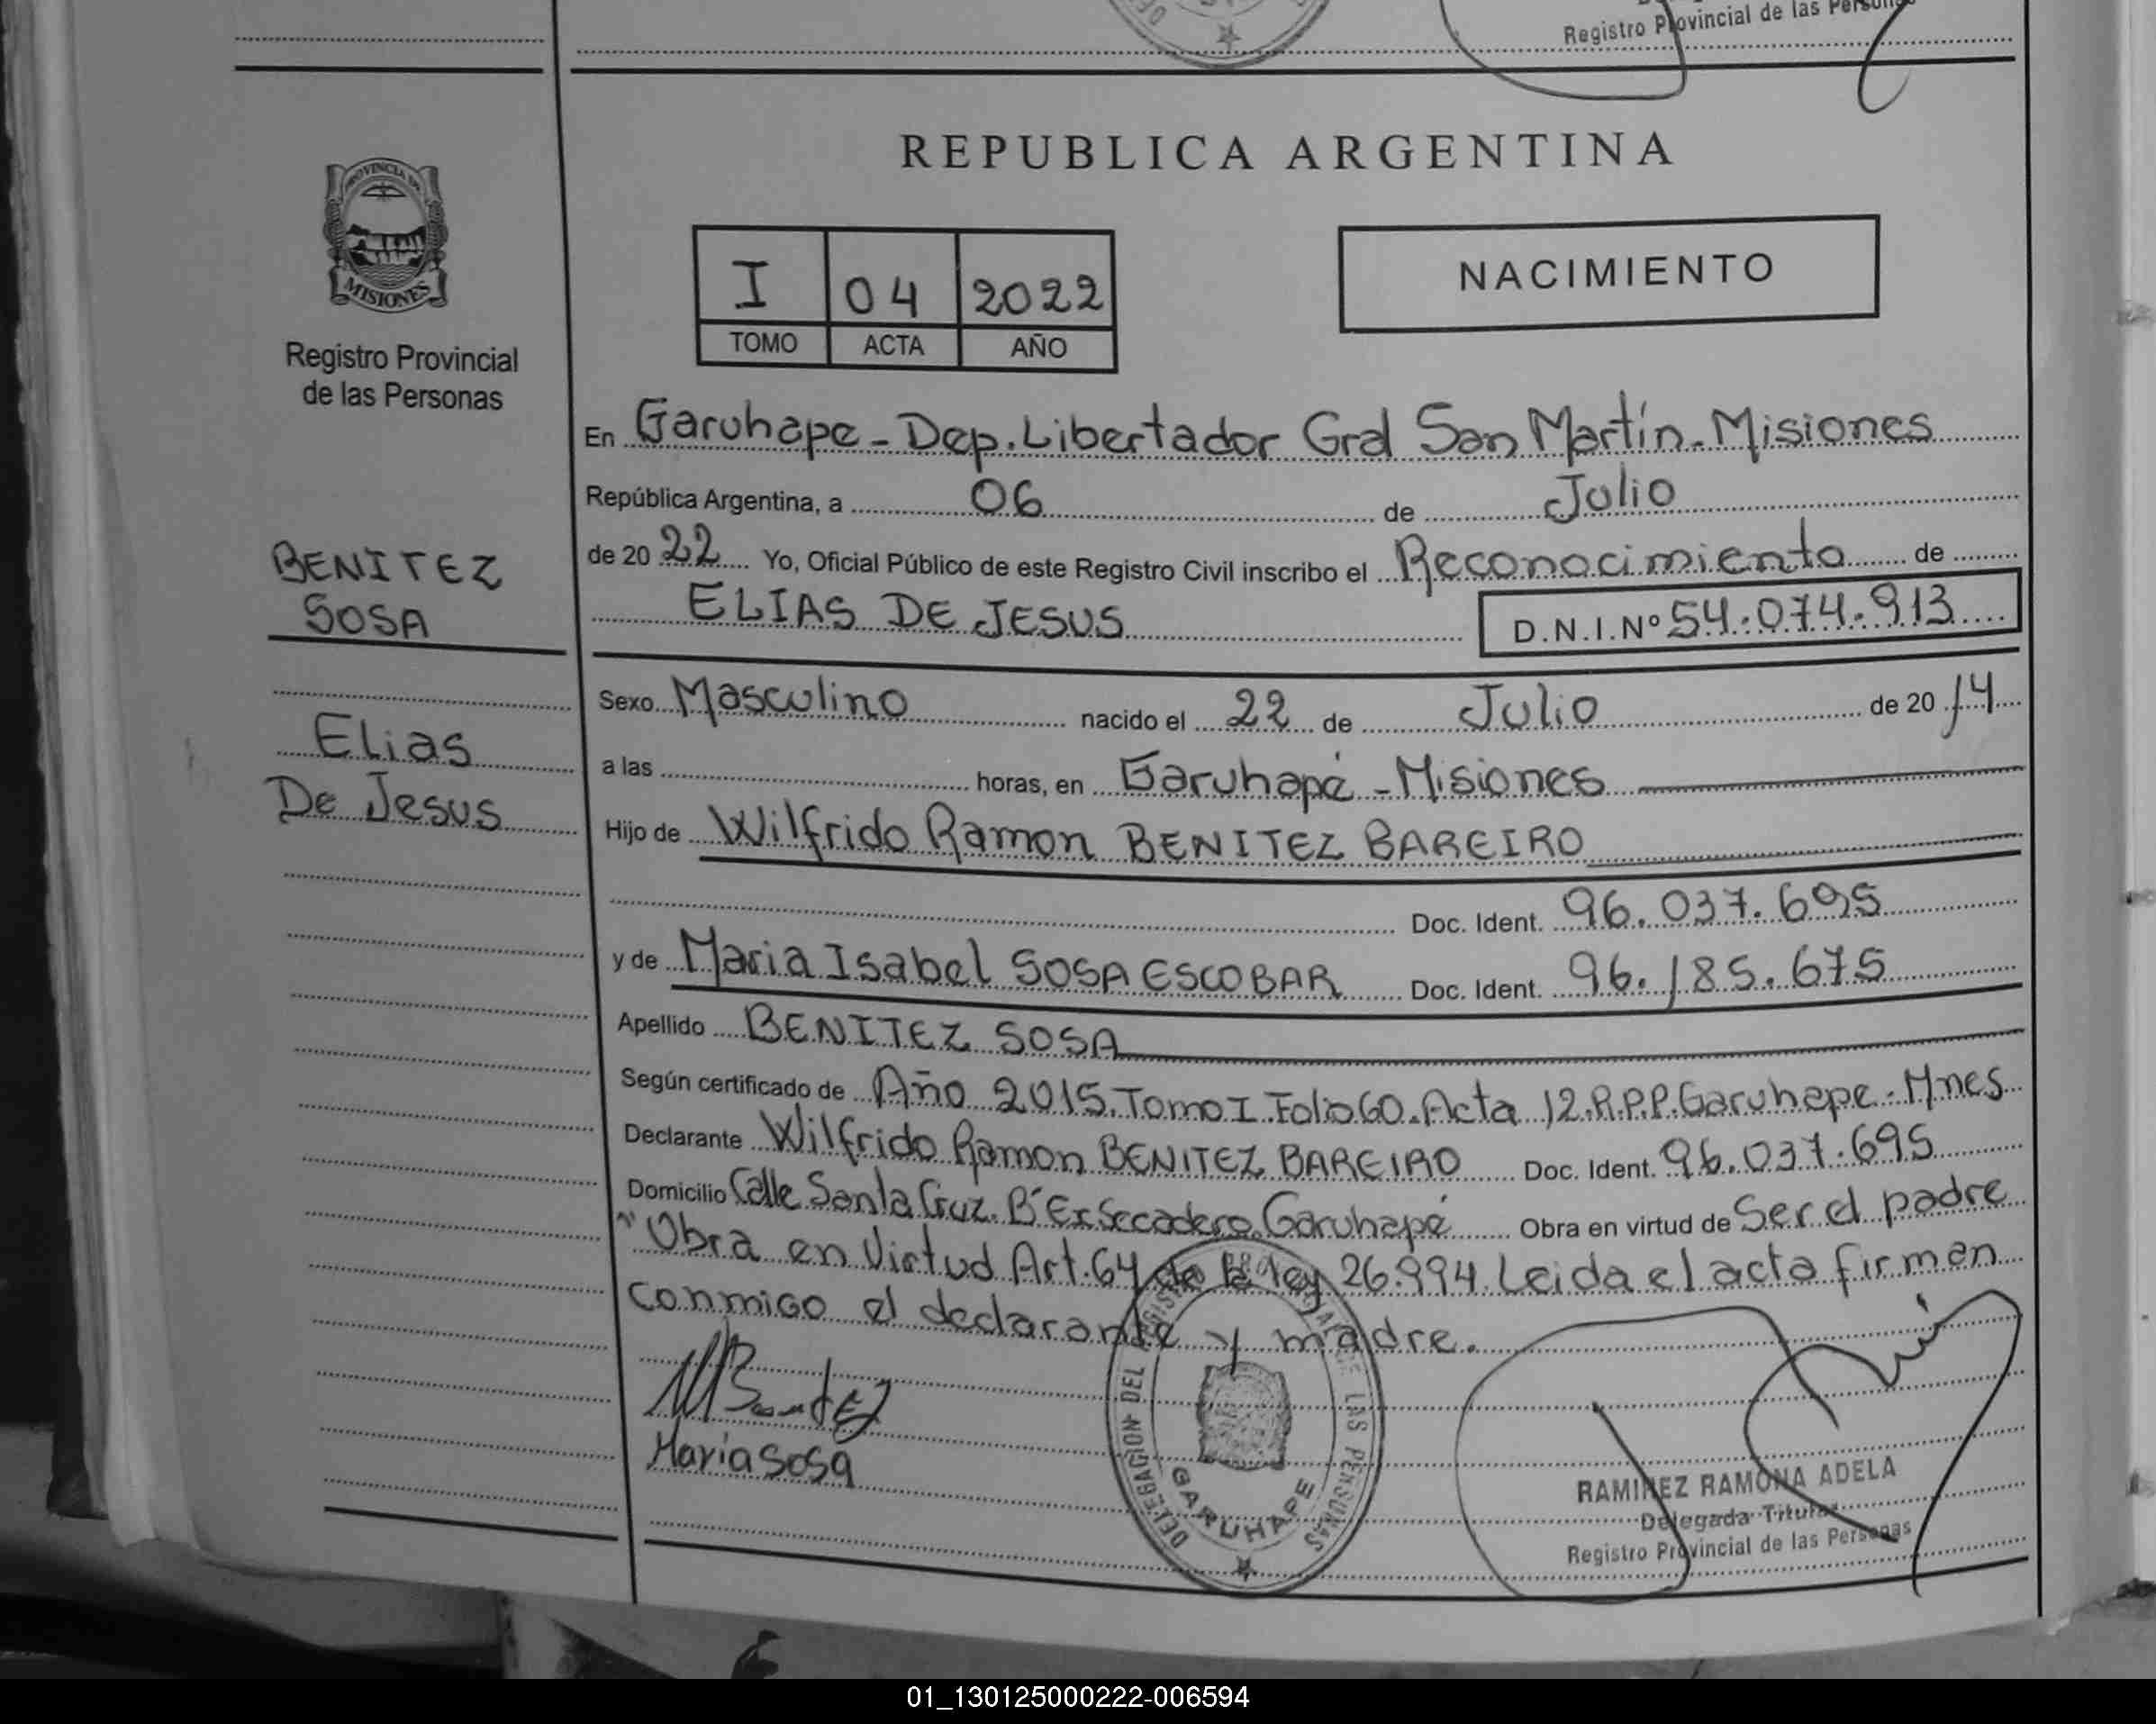 Registro Provincial de las Personas
REPUBLICA ARGENTINA
PROVINCIA DE
MISIONES
Registro Provincial
de las Personas
I 04 2022
TOMO ACTA AÑO
NACIMIENTO
BENITEZ
SOSA
Elias
De Jesus
En Garuhape - Dep. Libertador Gral San Martín - Misiones
República Argentina, a 06 de Julio
de 2022 Yo, Oficial Público de este Registro Civil inscribo el Reconocimiento de
ELIAS DE JESUS D.N.I.Nº 54.074.913
Sexo Masculino nacido el 22 de Julio de 2014
a las horas, en Garuhapé - Misiones
Hijo de Wilfrido Ramon BENITEZ BAREIRO
Doc. Ident. 96.037.695
y de Maria Isabel SOSA ESCOBAR Doc. Ident. 96.185.675
Apellido BENITEZ SOSA
Según certificado de Año 2015. Tomo I. Folio 60. Acta 12. R.P.P. Garuhape - Mnes
Declarante Wilfrido Ramon BENITEZ BAREIRO Doc. Ident. 96.037.695
Domicilio Calle Santa Cruz. B° Ex Secadero. Garuhapé Obra en virtud de Ser el padre
"Obra en Virtud Art. 64 de la ley 26.994. Leida el acta firman
conmigo el declarante y madre.
Maria Sosa
DELEGACION DEL REGISTRO PROVINCIAL DE LAS PERSONAS
GARUHAPE
RAMIREZ RAMONA ADELA
Delegada Titular
Registro Provincial de las Personas
01_130125000222-006594